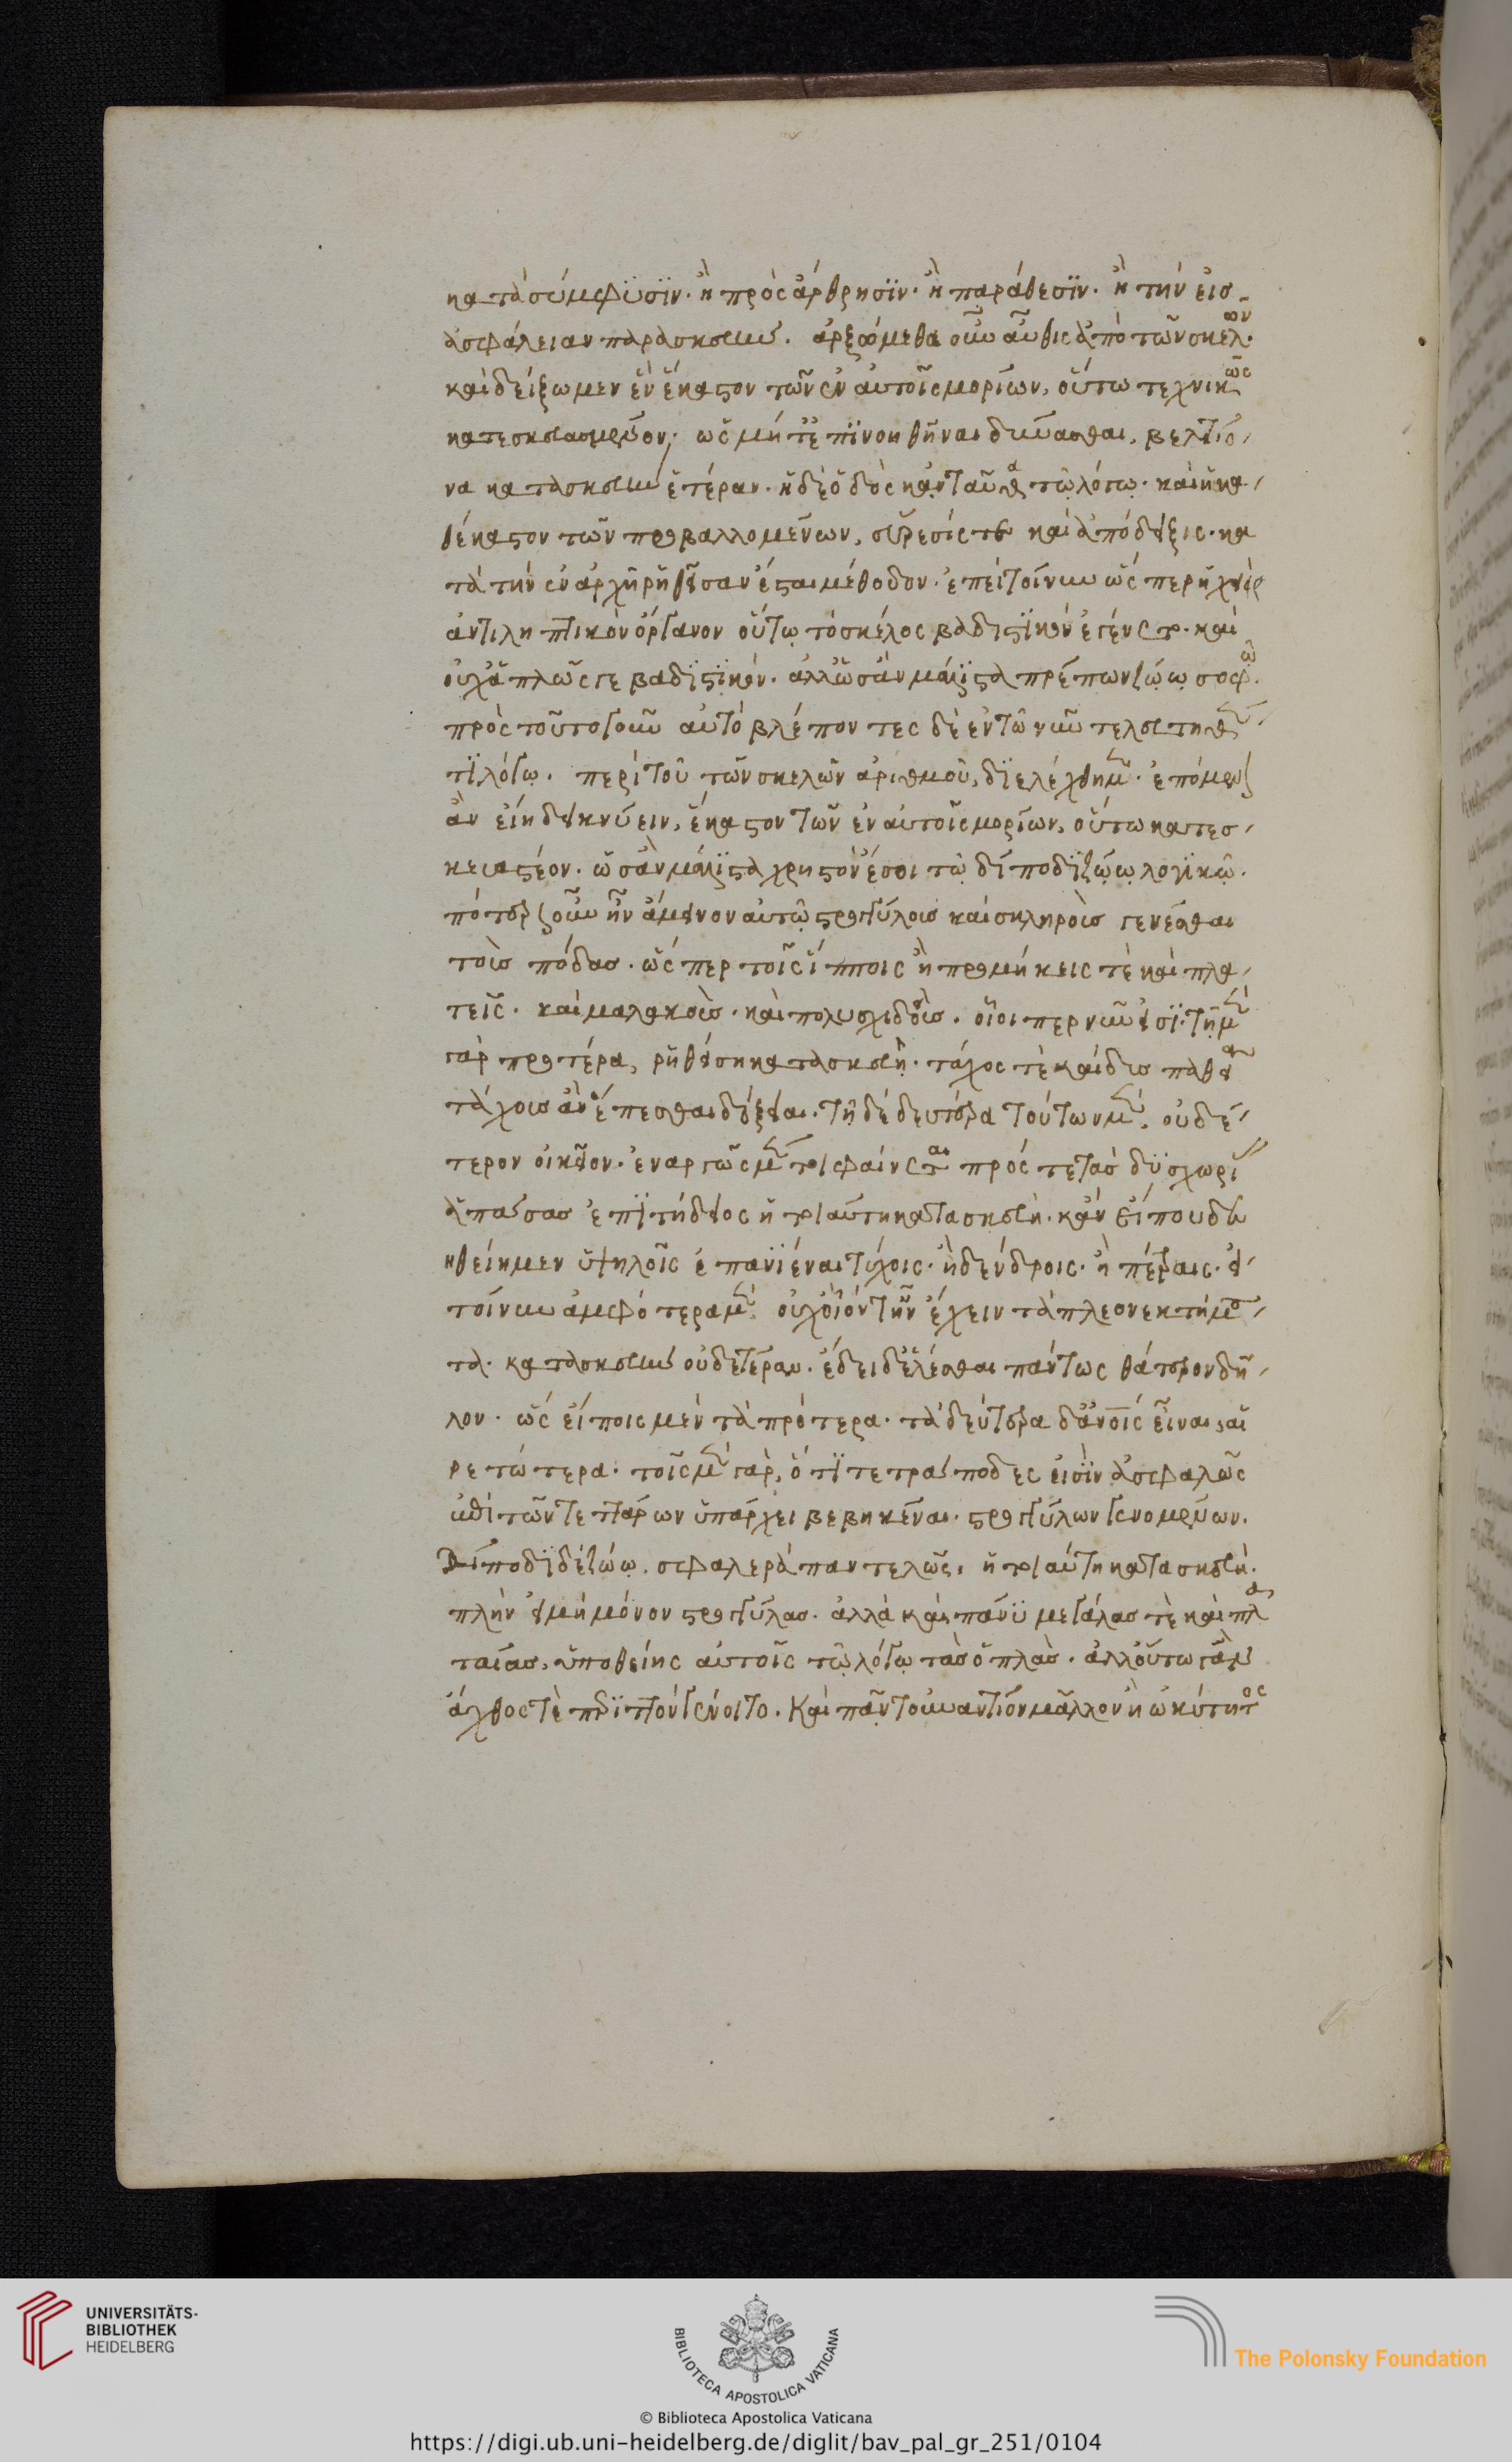 κατὰ σύμφϋσϊν· ἢ πρὸς ἄρθρησϊν· ἢ παράθεσϊν· ἢ τὴν εἰσ
ἀσφάλειαν παρασκευήν. ἀρξώμεθα οὖν αὖθις ἀπὸ τῶν σκελῶν·
καὶ δείξωμεν ἓν ἕκαστον τῶν ἐν αὐτοῖς μορίων, οὕτω τεχνικῶς
κατεσκευασμένον· ὡς μήτε πϊνοηθῆναι δύνασθαι, βελτίο
να κατασκευὴν ἑτέραν. ἡ δὲ ὁδὸς κᾀνταῦθα τῷ λόγῳ. καὶ ἡ κα
θέκαστον τῶν προβαλλομένων, εὕρεσίς τε καὶ ἀπόδειξις· κα
τὰ τὴν ἐν ἀρχῇ ῥηθεῖσαν ἔσται μέθοδον· ἐπεὶ τοίνυν ὥσπερ ἡ χεὶρ
ἀντιληπτικὸν ὄργανον οὕτω τὸ σκέλος βαδιστϊκὸν ἐγένετο. καὶ
οὐχ ἁπλῶς γε βαδϊστϊκὸν. ἀλλ' ὡς ἂν μάλϊστα πρέπων ζώῳ σοφῷ.
πρὸς τοῦτο γοῦν αὐτὸ βλέποντες δὲ ἐν τῶ νῦν
τϊ λόγῳ. περὶ τοῦ τῶν σκελῶν ἀριθμοῦ, δϊελέχθημεν. ἑπόμενον
ἂν εἴη δεικνύειν, ἕκαστον τῶν ἐν αὐτοῖς μορίων, οὕτω κατεσ
κευαστέον. ὡς ἂν μάλϊστα χρηστὸν ἔσοι τῷ δίποδϊ ζώῳ λογϊκῷ.
πότερον οὖν ἦν ἄμεινον αὐτῷ στρογγύλους καὶ σκληροὺς γενέσθαι
τοὺς πόδας. ὥσπερ τοῖς ἵπποις ἢ προμήκεις τὲ καὶ πλα
τεῖς. καὶ μαλακοὺς. καὶ πολυσχιδοὺς. οἷοι περ νῦν εἰσϊ· τῇ μὲν
γὰρ προτέρα, ῥηθείση κατασκευῇ. τάχος τὲ καὶ δυσπαθεία
τάχους ἂν ἕπεσθαι δόξειαι. τῇ δὲ δευτέρα τούτων μὲν, οὐδέ
τερον οἰκεῖον. ἐναργῶς μέντοι φαίνεται πρός τε τὰς δϋσχωρί
ἁπάσας ἐπϊτήδειος ἡ τοιαύτη κατασκευή. κἂν εἴ που δε
ηθείημεν ὑψηλοῖς ἐπανϊέναι τείχοις. ἢ δένδροις. ἢ πέτραις. εἰ
τοίνυν ἀμφότερα μὲν οὐχ οἷόν τ' ἦν ἔχειν τὰ πλεονεκτήμα
τα. κατασκευὴν οὐδετέραν. ἔδει δ' ἑλέσθαι πάντως θάτερον δῆ
λον. ὡς ἵπποις μὲν τὰ πρότερα. τὰ δεύτερα δ' ἀνοῖς εἶναι αἱ
ρετώτερα. τοῖς μὲν γὰρ, ὅτϊ τετράποδες εἰσὶν ἀσφαλῶς
ἐπὶ τῶν τεττάρων ὑπάρχει βεβηκέναι. στρογγύλων γενομένων.
Δίποδϊ δὲ ζώῳ. σφαλερὰ παντελῶς, ἡ τοιαύτη κατασκευή.
πλὴν εἰ μὴ μόνον στρογγύλας. ἀλλὰ καὶ πάνϋ μεγάλας τὲ καὶ πλα
ταίας, ὑποθείης αὐτοῖς τῷ λόγῳ τὰς ὁπλὰς. ἀλλ' οὕτω γὰρ
ἄχθος τὲ περϊττόν γένοιτο. Καὶ πᾶν τοὐναντίον μᾶλλον ἢ ὠκύτητος
UNIVERSITÄTS-
BIBLIOTHEK
HEIDELBERG
BIBLIOTECA APOSTOLICA VATICANA
The Polonsky Foundation
© Biblioteca Apostolica Vaticana
https://digi.ub.uni-heidelberg.de/diglit/bav_pal_gr_251/0104